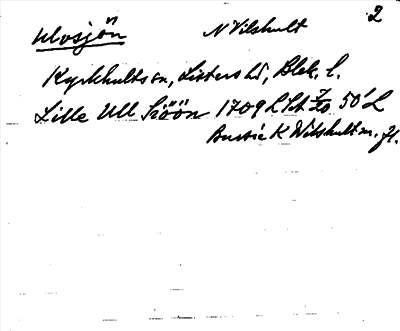 Ulvsjön N Vilshult 2
Kyrkhults sn, Listers hd, Blek. l.
Lille Ull Siöön 1709 LSt Fo 50' L
K Wilshult m. fl.